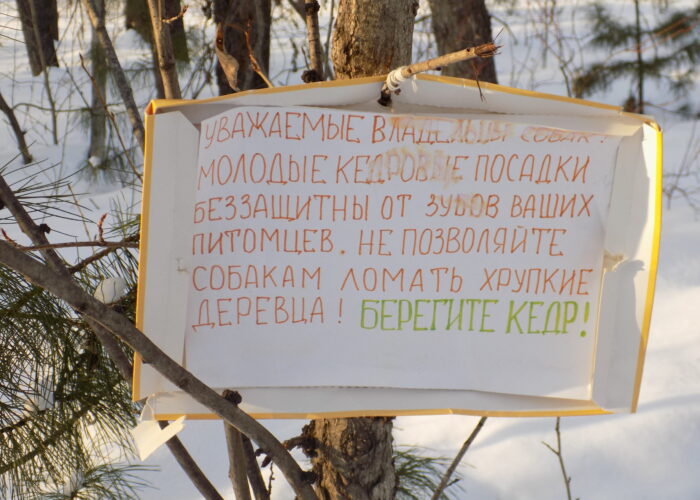 УВАЖАЕМЫЕ ВЛАДЕЛЬЦЫ СОБАК!
МОЛОДЫЕ КЕДРОВЫЕ ПОСАДКИ
БЕЗЗАЩИТНЫ ОТ ЗУБОВ ВАШИХ
ПИТОМЦЕВ. НЕ ПОЗВОЛЯЙТЕ
СОБАКАМ ЛОМАТЬ ХРУПКИЕ
ДЕРЕВЦА! БЕРЕГИТЕ КЕДР!